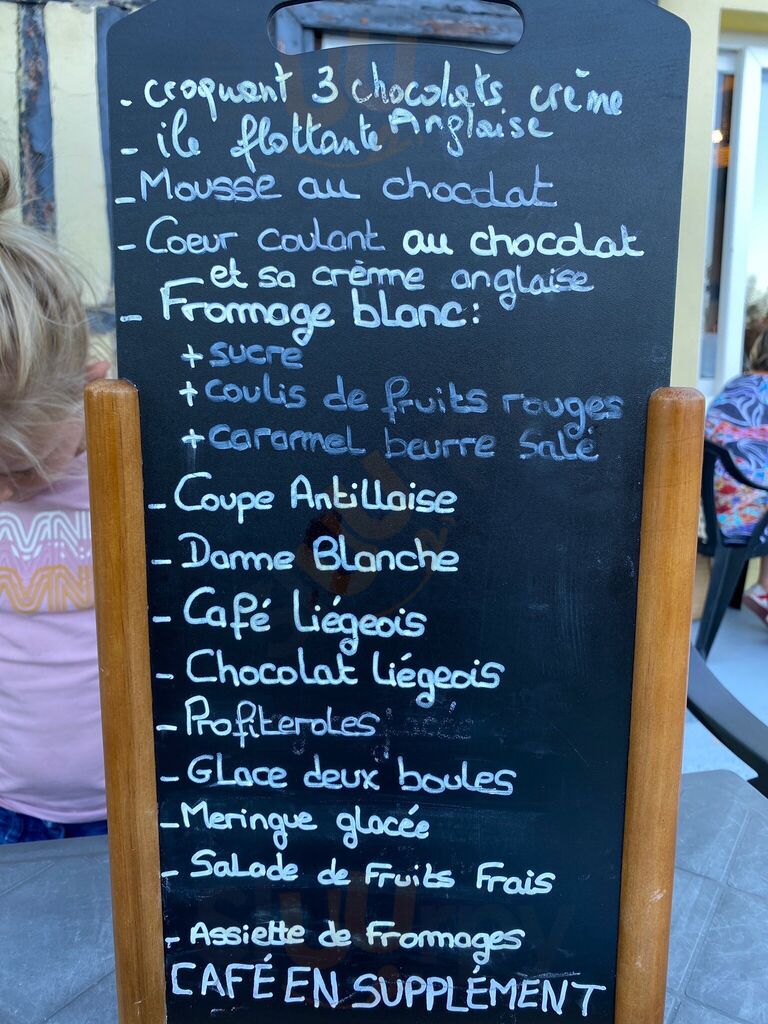 - croquant 3 chocolats crème
- ile flottante Anglaise
- Mousse au chocolat
- Coeur coulant au chocolat
et sa crème anglaise
- Fromage blanc :
+ sucre
+ coulis de fruits rouges
+ caramel beurre salé
- Coupe Antillaise
- Dame Blanche
- Café Liégeois
- Chocolat Liégeois
- Profiteroles
- Glace deux boules
- Meringue glacée
- Salade de Fruits Frais
- Assiette de Fromages
CAFÉ EN SUPPLÉMENT